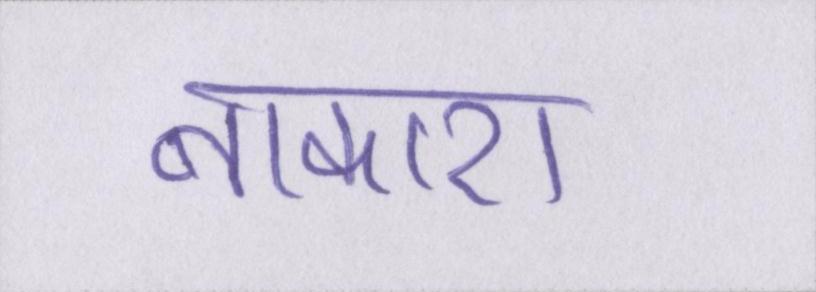 नाकारा